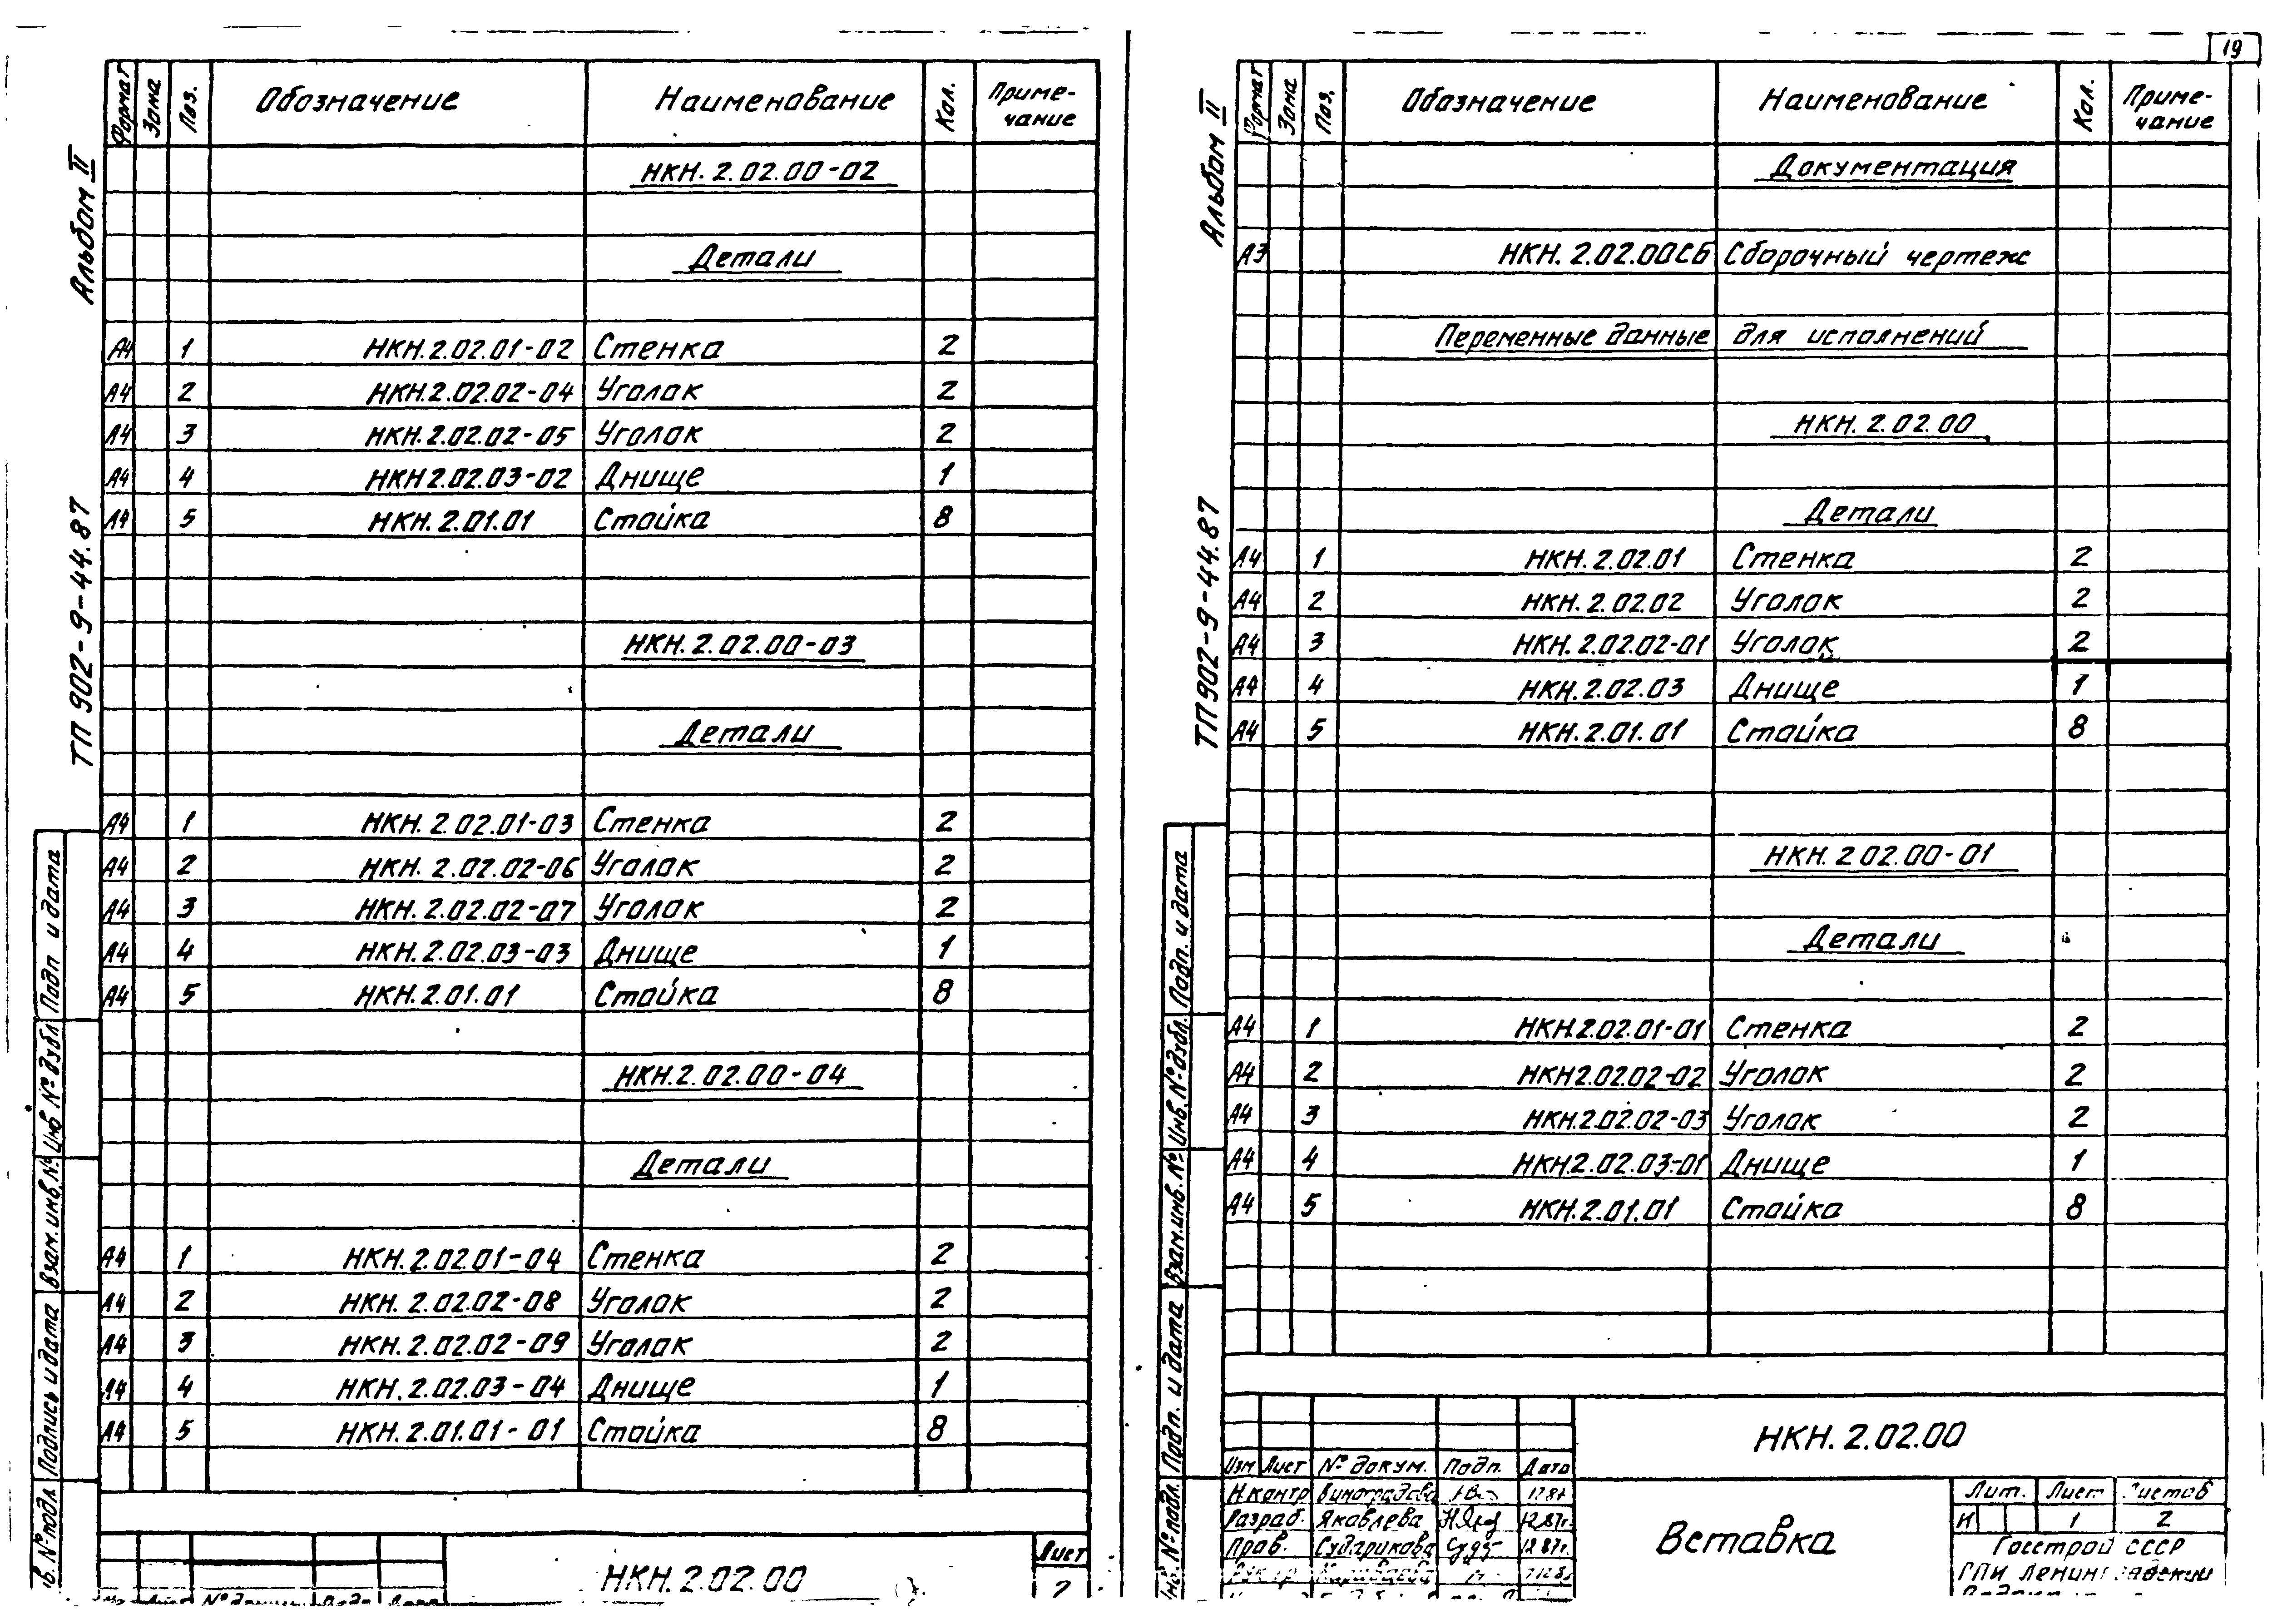 Альбом II
ТП 902-9-44.87
Формат Зона Поз. Обозначение Наименование Кол. Приме-
чание
НКН. 2.02.00-02
Детали
А4 1 НКН.2.02.01-02 Стенка 2
А4 2 НКН.2.02.02-04 Уголок 2
А4 3 НКН.2.02.02-05 Уголок 2
А4 4 НКН2.02.03-02 Днище 1
А4 5 НКН.2.01.01 Стойка 8
НКН.2.02.00-03
Детали
А4 1 НКН.2.02.01-03 Стенка 2
А4 2 НКН.2.02.02-06 Уголок 2
А4 3 НКН.2.02.02-07 Уголок 2
А4 4 НКН.2.02.03-03 Днище 1
А4 5 НКН.2.01.01 Стойка 8
НКН.2.02.00-04
Детали
А4 1 НКН.2.02.01-04 Стенка 2
А4 2 НКН.2.02.02-08 Уголок 2
А4 3 НКН.2.02.02-09 Уголок 2
А4 4 НКН.2.02.03-04 Днище 1
А4 5 НКН.2.01.01-01 Стойка 8
Подп и дата
Инв № дубл
Взам.инв.№
Подпись и дата
№ подл.
НКН.2.02.00
Лист
2
19
Альбом II
ТП 902-9-44.87
Формат Зона Поз. Обозначение Наименование Кол. Приме-
чание
Документация
А3 НКН.2.02.00СБ Сборочный чертеж
Переменные данные для исполнений
НКН.2.02.00
Детали
А4 1 НКН.2.02.01 Стенка 2
А4 2 НКН.2.02.02 Уголок 2
А4 3 НКН.2.02.02-01 Уголок 2
А4 4 НКН.2.02.03 Днище 1
А4 5 НКН.2.01.01 Стойка 8
НКН.2 02.00-01
Детали
А4 1 НКН.2.02.01-01 Стенка 2
А4 2 НКН2.02.02-02 Уголок 2
А4 3 НКН.2.02.02-03 Уголок 2
А4 4 НКН.2.02.03-01 Днище 1
А4 5 НКН.2.01.01 Стойка 8
Подп. и дата
Инв.№ дубл.
Взам.инв.№
Подп. и дата
№ подл.
НКН.2.02.00
Изм Лист № докум. Подп. Дата
Н.контр Виноградова 12 87
Разраб. Яковлева 12.87г.
Пров. Сударикова 12 87г.
Вставка
Лит. Лист Листов
И 1 2
Госстрой СССР
ГПИ Ленинградский